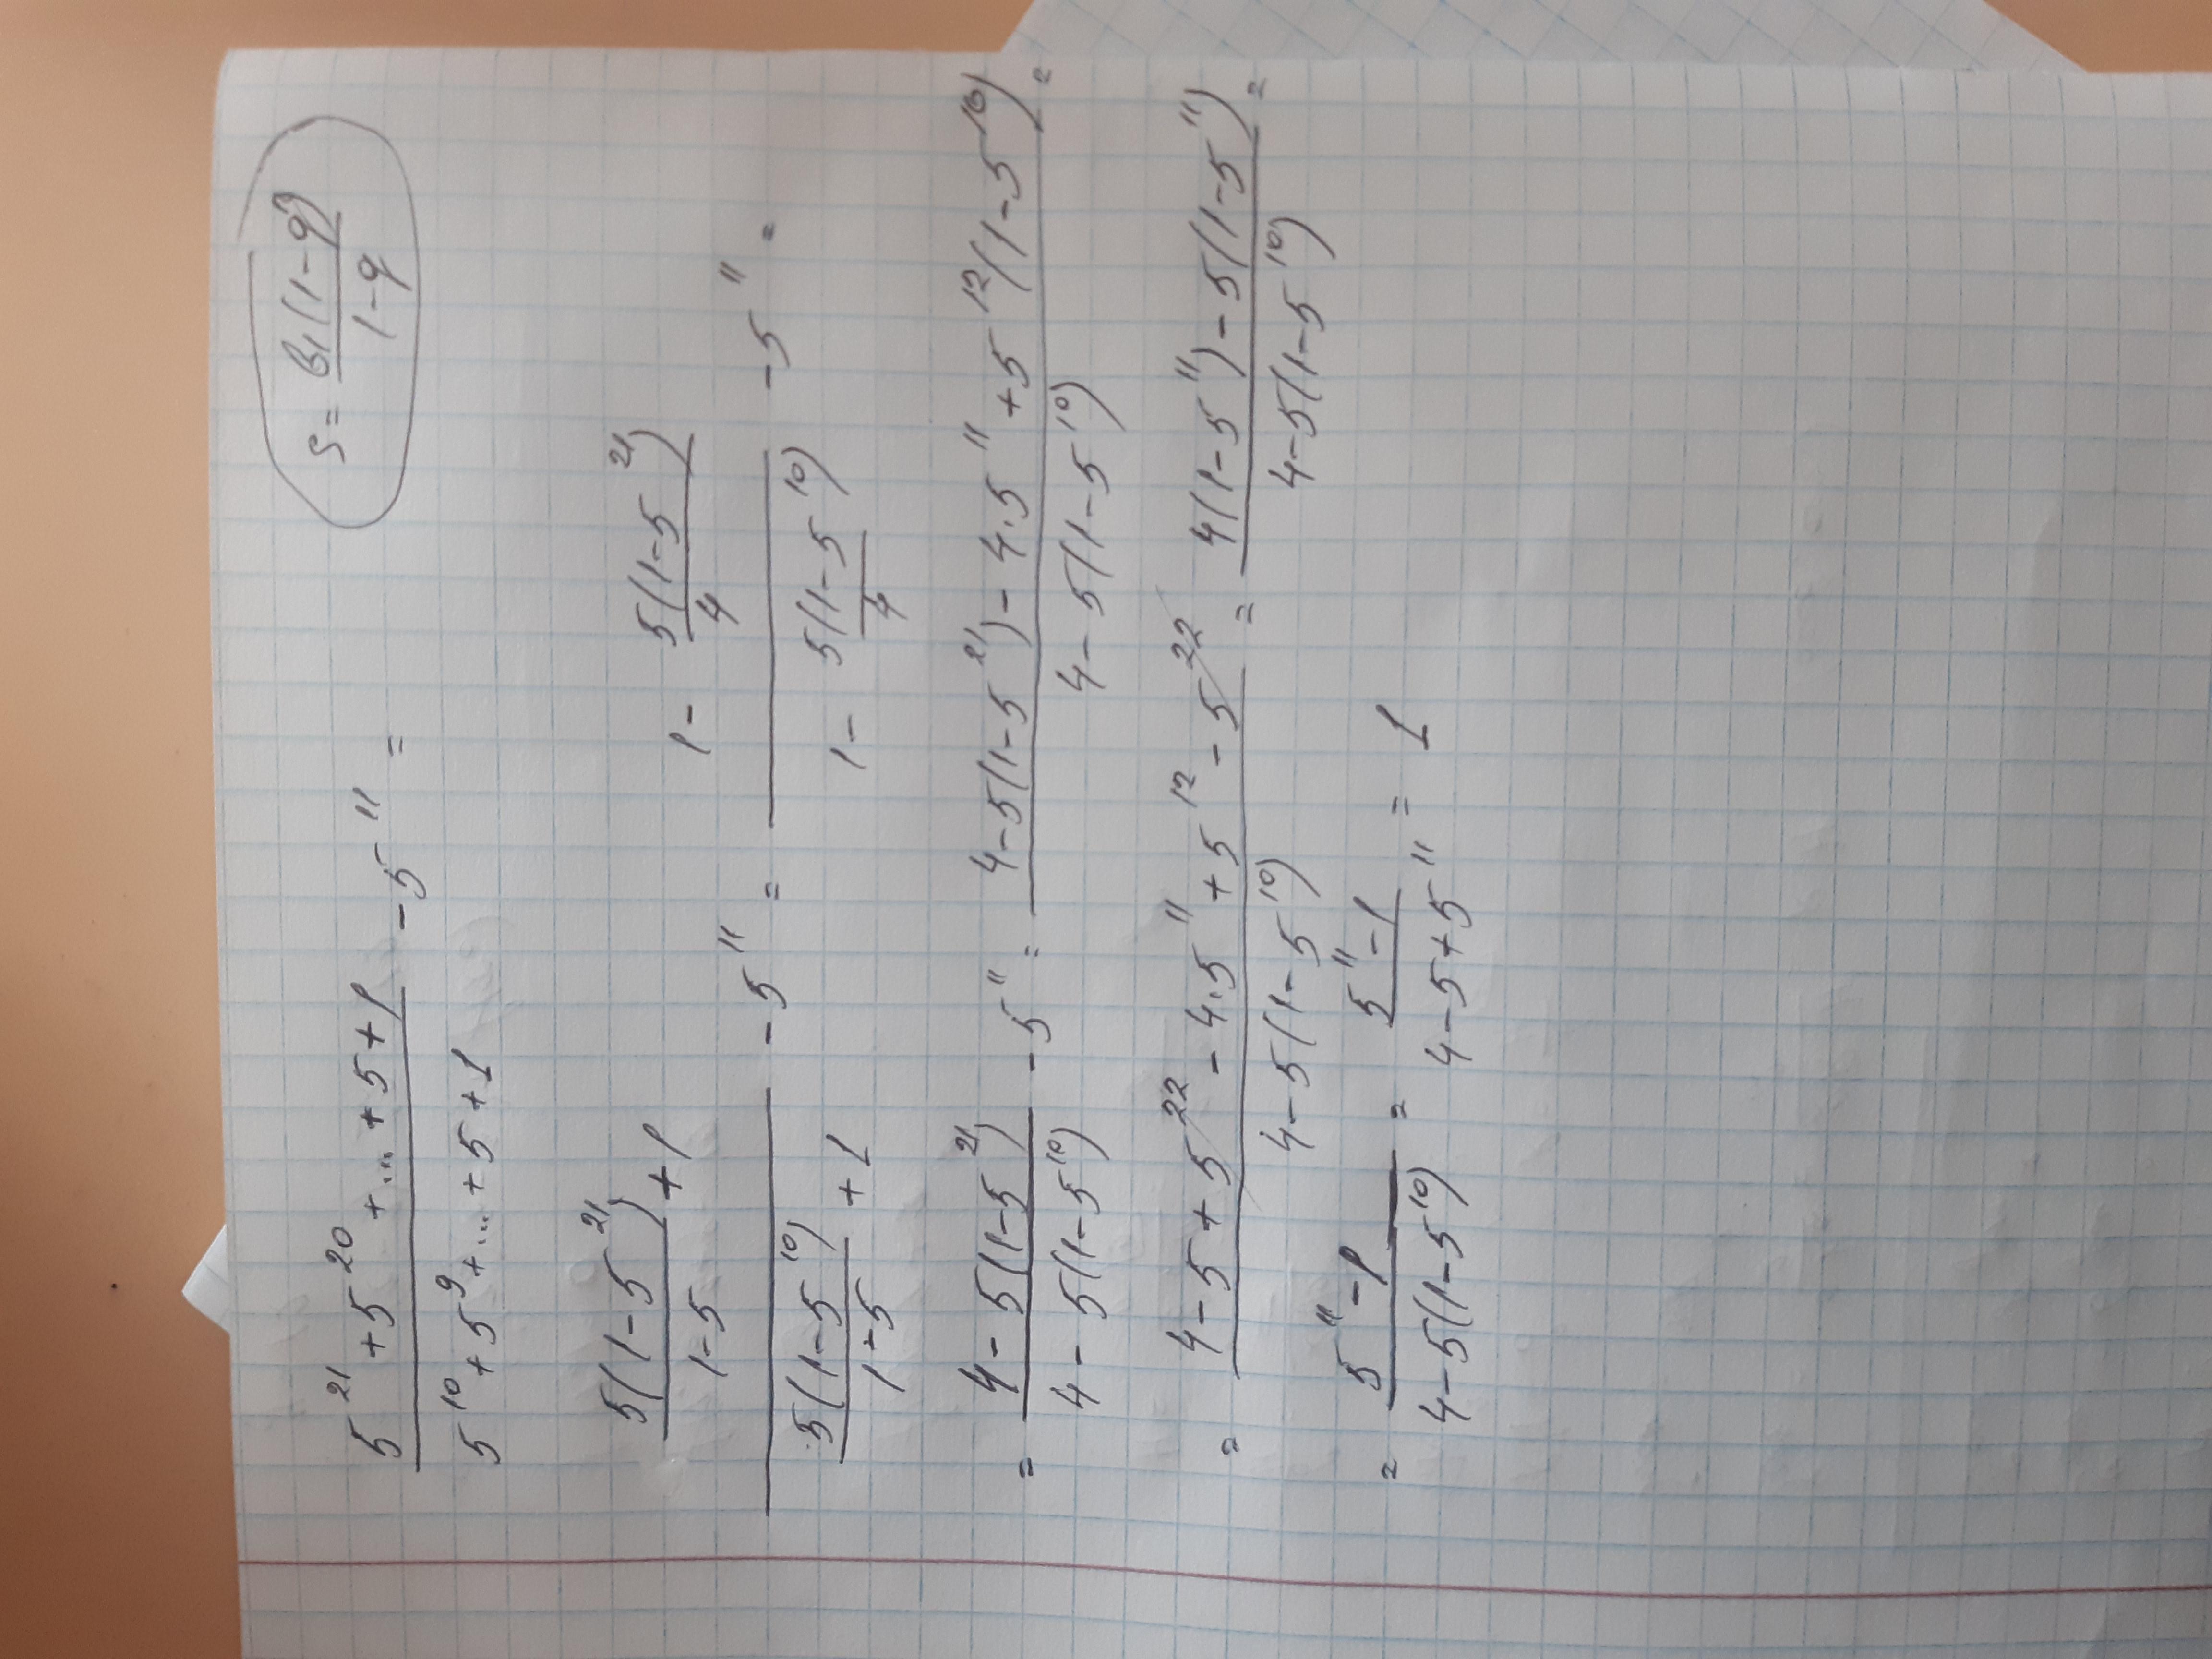 S = b₁(1-q)/(1-q)
(5²¹+5²⁰+...+5+1)/(5¹⁰+5⁹+...+5+1) - 5¹¹ =
(5(1-5²¹)/(1-5) + 1)/(5(1-5¹⁰)/(1-5) + 1) - 5¹¹ = (1 - 5(1-5²¹)/4)/(1 - 5(1-5¹⁰)/4) - 5¹¹ =
= (4-5(1-5²¹))/(4-5(1-5¹⁰)) - 5¹¹ = (4-5(1-5²¹)-4·5¹¹+5¹²(1-5¹⁰))/(4-5(1-5¹⁰)) =
= (4-5+5²²-4·5¹¹+5¹²-5²²)/(4-5(1-5¹⁰)) = (4(1-5¹¹)-5(1-5¹¹))/(4-5(1-5¹⁰)) =
= (5¹¹-1)/(4-5(1-5¹⁰)) = (5¹¹-1)/(4-5+5¹¹) = 1